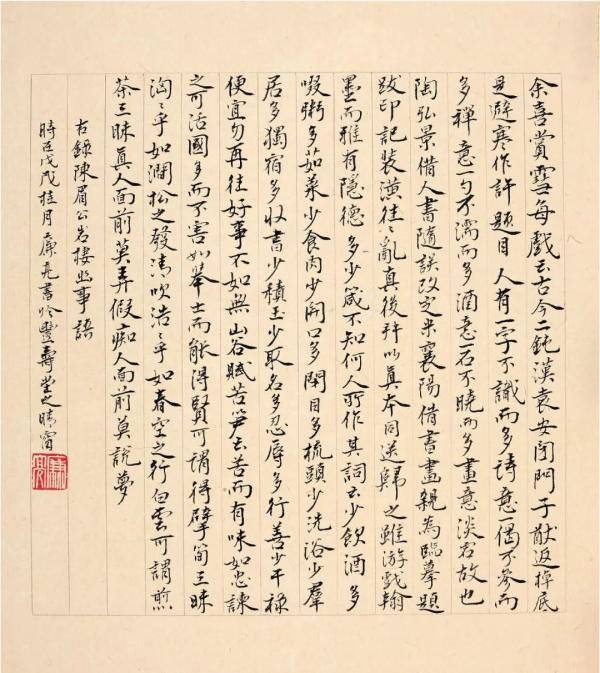 余喜賞雪每戲云古今二鈍漢袁安閉門子猷返棹底
是避寒作許題目人有一字不識而多詩意一偈不參而
多禪意一勺不濡而多酒意一石不曉而多畫意淡宕故也
陶弘景借人書隨誤改定米襄陽借書畫親為臨摹題
跋印記裝潢往〻亂真後并以真本同送歸之雖游戲翰
墨而雅有隱德多少箴不知何人所作其詞云少飲酒多
啜粥多茹菜少食肉少開口多閉目多梳頭少洗浴少羣
居多獨宿多收書少積玉少取名多忍辱多行善少干祿
便宜勿再往好事不如無山谷賦苦笋云苦而有味如忠諫
之可活國多而不害如舉士而能得賢可謂得擘筍三昧
洶〻乎如澗松之發清吹浩〻乎如春空之行白雲可謂煎
茶三昧真人面前莫弄假痴人面前莫說夢
右錄陳眉公岩棲幽事語
時在戊戌桂月廉亮書於豐壽堂之晴窗